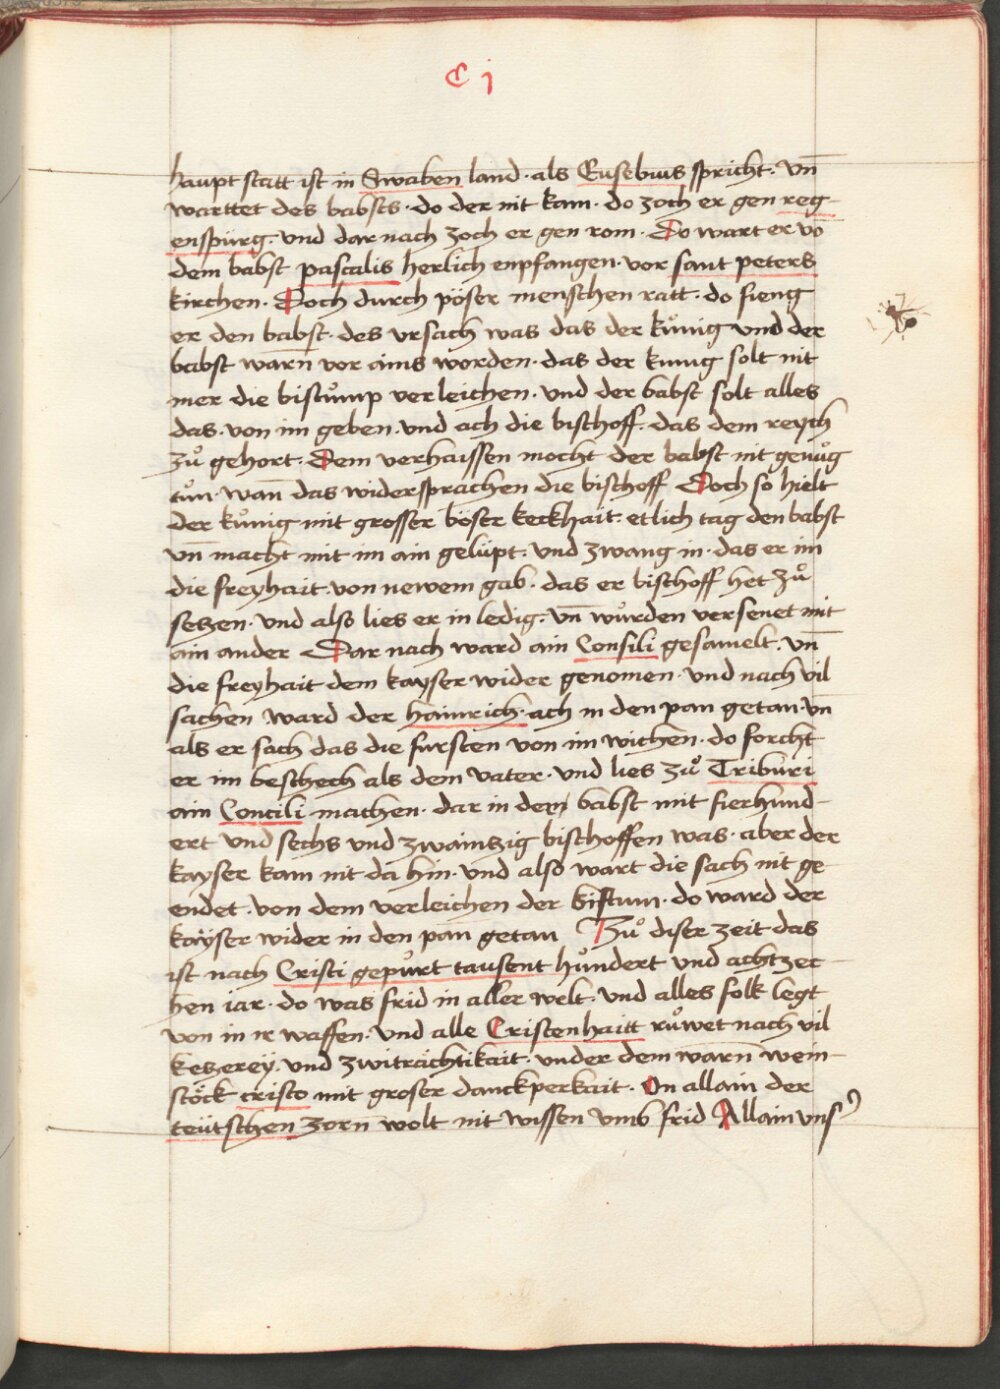 C j
haupt statt ist in Swaben land · als Eusebius spricht · vn̄
warttet des babsts · do der nit kam · do zoch er gen reg-
enspurg · vnd dar nach zoch er gen rom · Do wart er vō
dem babst pascalis herlich enpfangen · vor sant peters
kirchen · Doch durch pöser menschen ratt · do fieng
er den babst · des vrsach was das der kůnig vnd der
babst warn̄ vor ains worden · das der kunig solt nit
mer die bistůmp verleichen · vnd der babst solt alles
das · von im geben · vnd ach die bischoff · das dem reych
zů gehort · Dem verhaissen mocht der babst nit genůg
tůn · wan̄ das widersprachen die bischoff Doch so hielt
der kůnig mit grosser böser keckhait etlich tag den babst
vn̄ macht mit im ain gelüpt · vnd zwang in · das er im
die freyhait von newem gab · das er bischoff het zů
setzen · vnd also lies er in ledig · vn̄ wůrden versenet mit
ain ander Dar nach ward ain Consili gesamelt · vn̄
die freyhait dem kayser wider genomen · vnd nach vil
sachen ward der hainrich · ach in den pan getan · vn̄
als er sach das die fursten von im wichen · do forcht
er im beschech als dem vater · vnd lies zů Triburi
ain Concili machen · dar in dem babst mit fierhund-
ert vnd sechs vnd zwainzig bischoffen was · aber der
kayser kam nit da hin · vnd also wart die sach nit ge-
endet · von dem verleichen der bistum · do ward der
kaÿser wider in den pan getan Zů diser zeit das
ist nach Cristi gepůrt tausent hůndert vnd achtzec-
hen iar · do was frid in aller welt · vnd alles folk legt
von in ir waffen · vnd alle Cristenhaitt růwet nach vil
ketzereÿ · vnd zwiträchtikait · vnder dem warn̄ wein-
stöck cristo mit groser danckperkait · On allain der
teütschen zorn̄ wolt nit wissen vmb frid Allain vnsꝰ